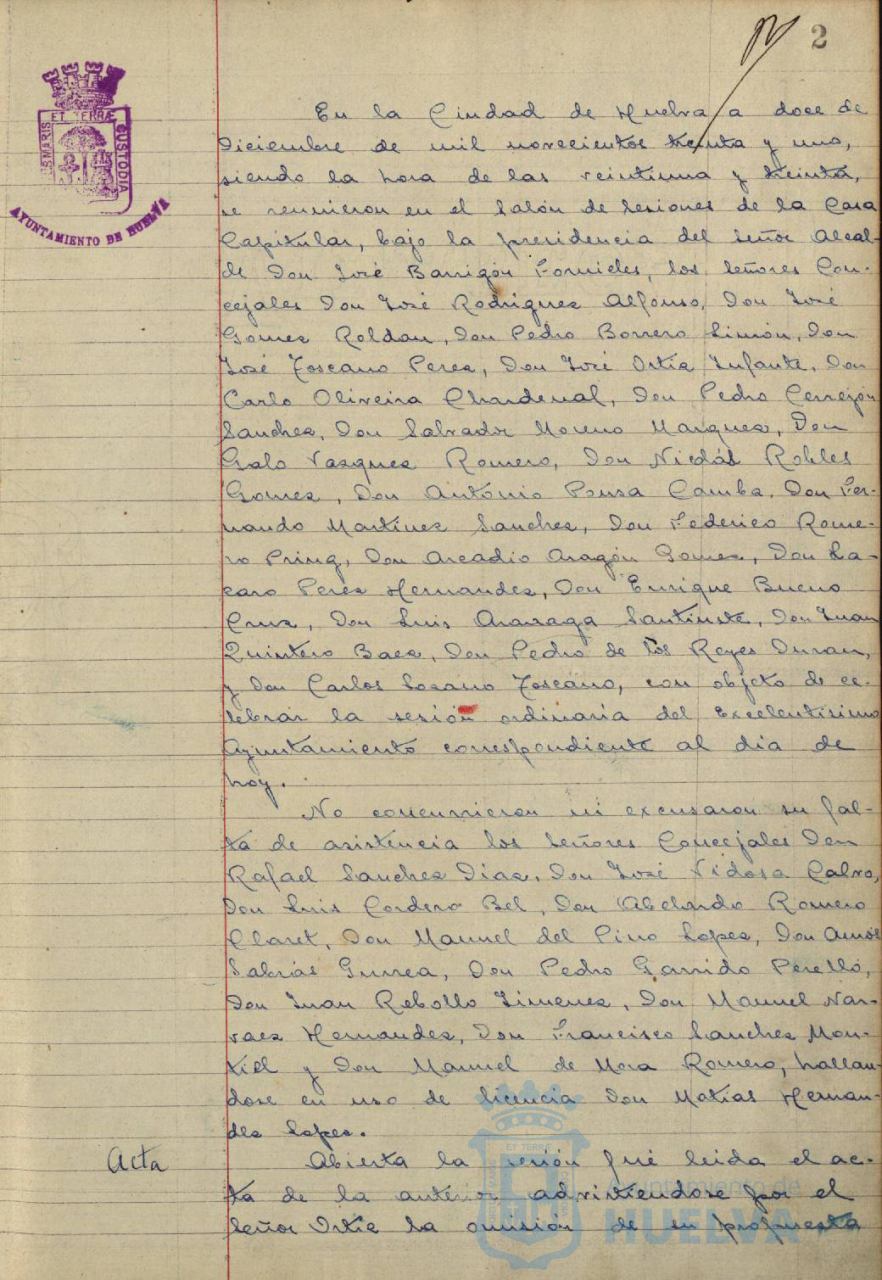 2
ET TERRÆ
CUSTODIA
AYUNTAMIENTO DE HUELVA
En la Ciudad de Huelva a doce de
Diciembre de mil novecientos treinta y uno,
siendo la hora de las veintiuna y treinta,
se reunieron en el Salón de Sesiones de la Casa
Capitular, bajo la presidencia del Señor Alcal-
de Don José Barrigón Fornieles, los Señores Con-
cejales Don José Rodriguez Alfonso, Don José
Gomez Roldan, Don Pedro Borrero Limón, Don
José Toscano Perez, Don José Ortiz Infante, Don
Carlo Oliveira Chardenal, Don Pedro Cerrejón
Sanchez, Don Salvador Moreno Marquez, Don
Galo Vazquez Romero, Don Nicolás Robles
Gomez, Don António Pousa Camba, Don Fer-
nando Martínez Sanchez, Don Federico Rome-
ro Pring, Don Arcadio Aragón Gomez, Don La-
zaro Perez Hernandez, Don Enrique Bueno
Cruz, Don Luis Ararzaga Santiuste, Don Juan
Quintero Baez, Don Pedro de los Reyes Duran,
y Don Carlos Lozano Toscano, con objeto de ce-
lebrar la sesión ordinaria del Excelentísimo
Ayuntamiento correspondiente al dia de
hoy.
No concurrieron ni excusaron su fal-
ta de asistencia los Señores Concejales Don
Rafael Sanchez Diaz, Don José Vidosa Calvo,
Don Luis Cordero Bel, Don Abelardo Romero
Claret, Don Manuel del Pino Lopez, Don Amós
Sabrás Gurrea, Don Pedro Garrido Perelló,
Don Juan Rebollo Jimenez, Don Manuel Nar-
vaez Hernandez, Don Francisco Sanchez Mon-
tiel y Don Manuel de Mora Romero, hallan-
dose en uso de licencia Don Matías Hernan-
dez Lopez.
Acta
Abierta la sesión fué leida el ac-
ta de la anterior advirtiendose por el
Señor Ortiz la omisión de su propuesta
Ayuntamiento de
HUELVA